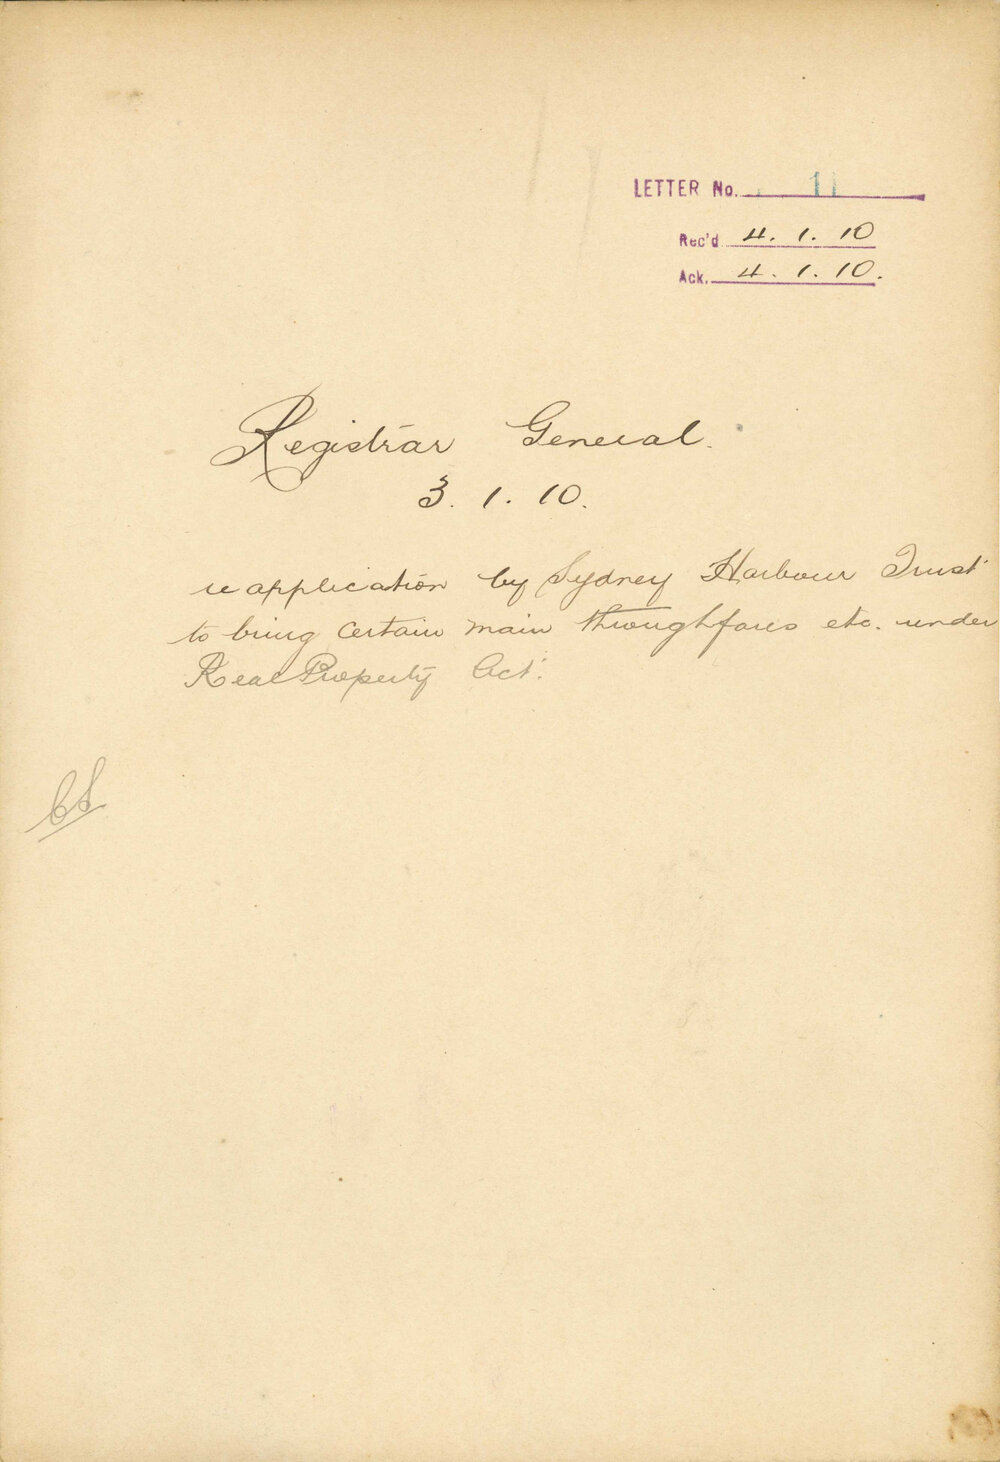 LETTER No. 11
Rec'd 4. 1. 10
Ack. 4. 1. 10.
Registrar General.
3. 1. 10.
re application by Sydney Harbour Trust
to bring certain main throughfares etc. under
Real Property Act.